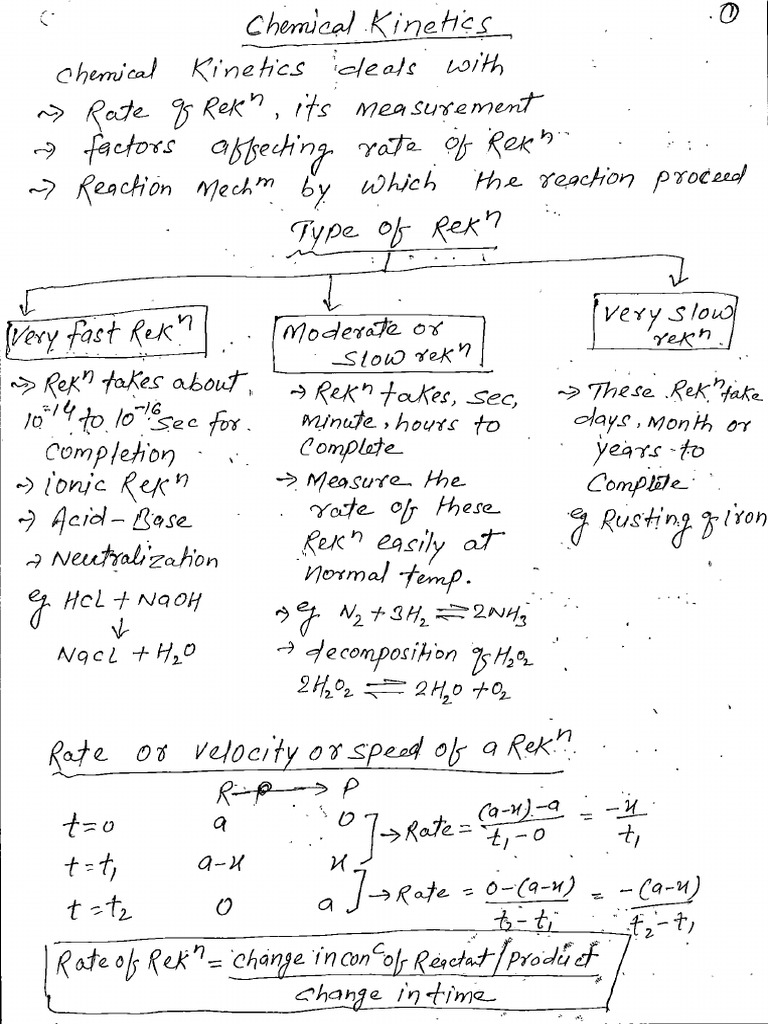 ①
Chemical Kinetics
Chemical Kinetics deals with
~> Rate of Rekⁿ, its measurement
~> factors affecting rate of Rekⁿ
~> Reaction Mechᵐ by which the reaction proceed
Type of Rekⁿ
Very fast Rekⁿ
~> Rekⁿ takes about
10⁻¹⁴ to 10⁻¹⁶ sec for
completion
~> ionic Rekⁿ
~> Acid-Base
~> Neutralization
eg HCL + NaOH
↓
NaCL + H₂O
Moderate or
slow rekⁿ
~> Rekⁿ takes, sec,
minute, hours to
complete
~> Measure the
rate of these
Rekⁿ easily at
normal temp.
~> eg N₂ + 3H₂ ⇌ 2NH₃
~> decomposition of H₂O₂
2H₂O₂ ⇌ 2H₂O + O₂
very slow
rekⁿ
~> These Rekⁿ take
days, month or
years to
Complete
eg Rusting of iron
Rate or velocity or speed of a Rekⁿ
R → P
t=0 a 0 → Rate = (a-x)-a / t₁-0 = -x / t₁
t=t₁ a-x x
t=t₂ 0 a → Rate = 0-(a-x) / t₂-t₁ = -(a-x) / t₂-t₁
Rate of Rekⁿ = change in conᶜ of Reactat/product
change in time